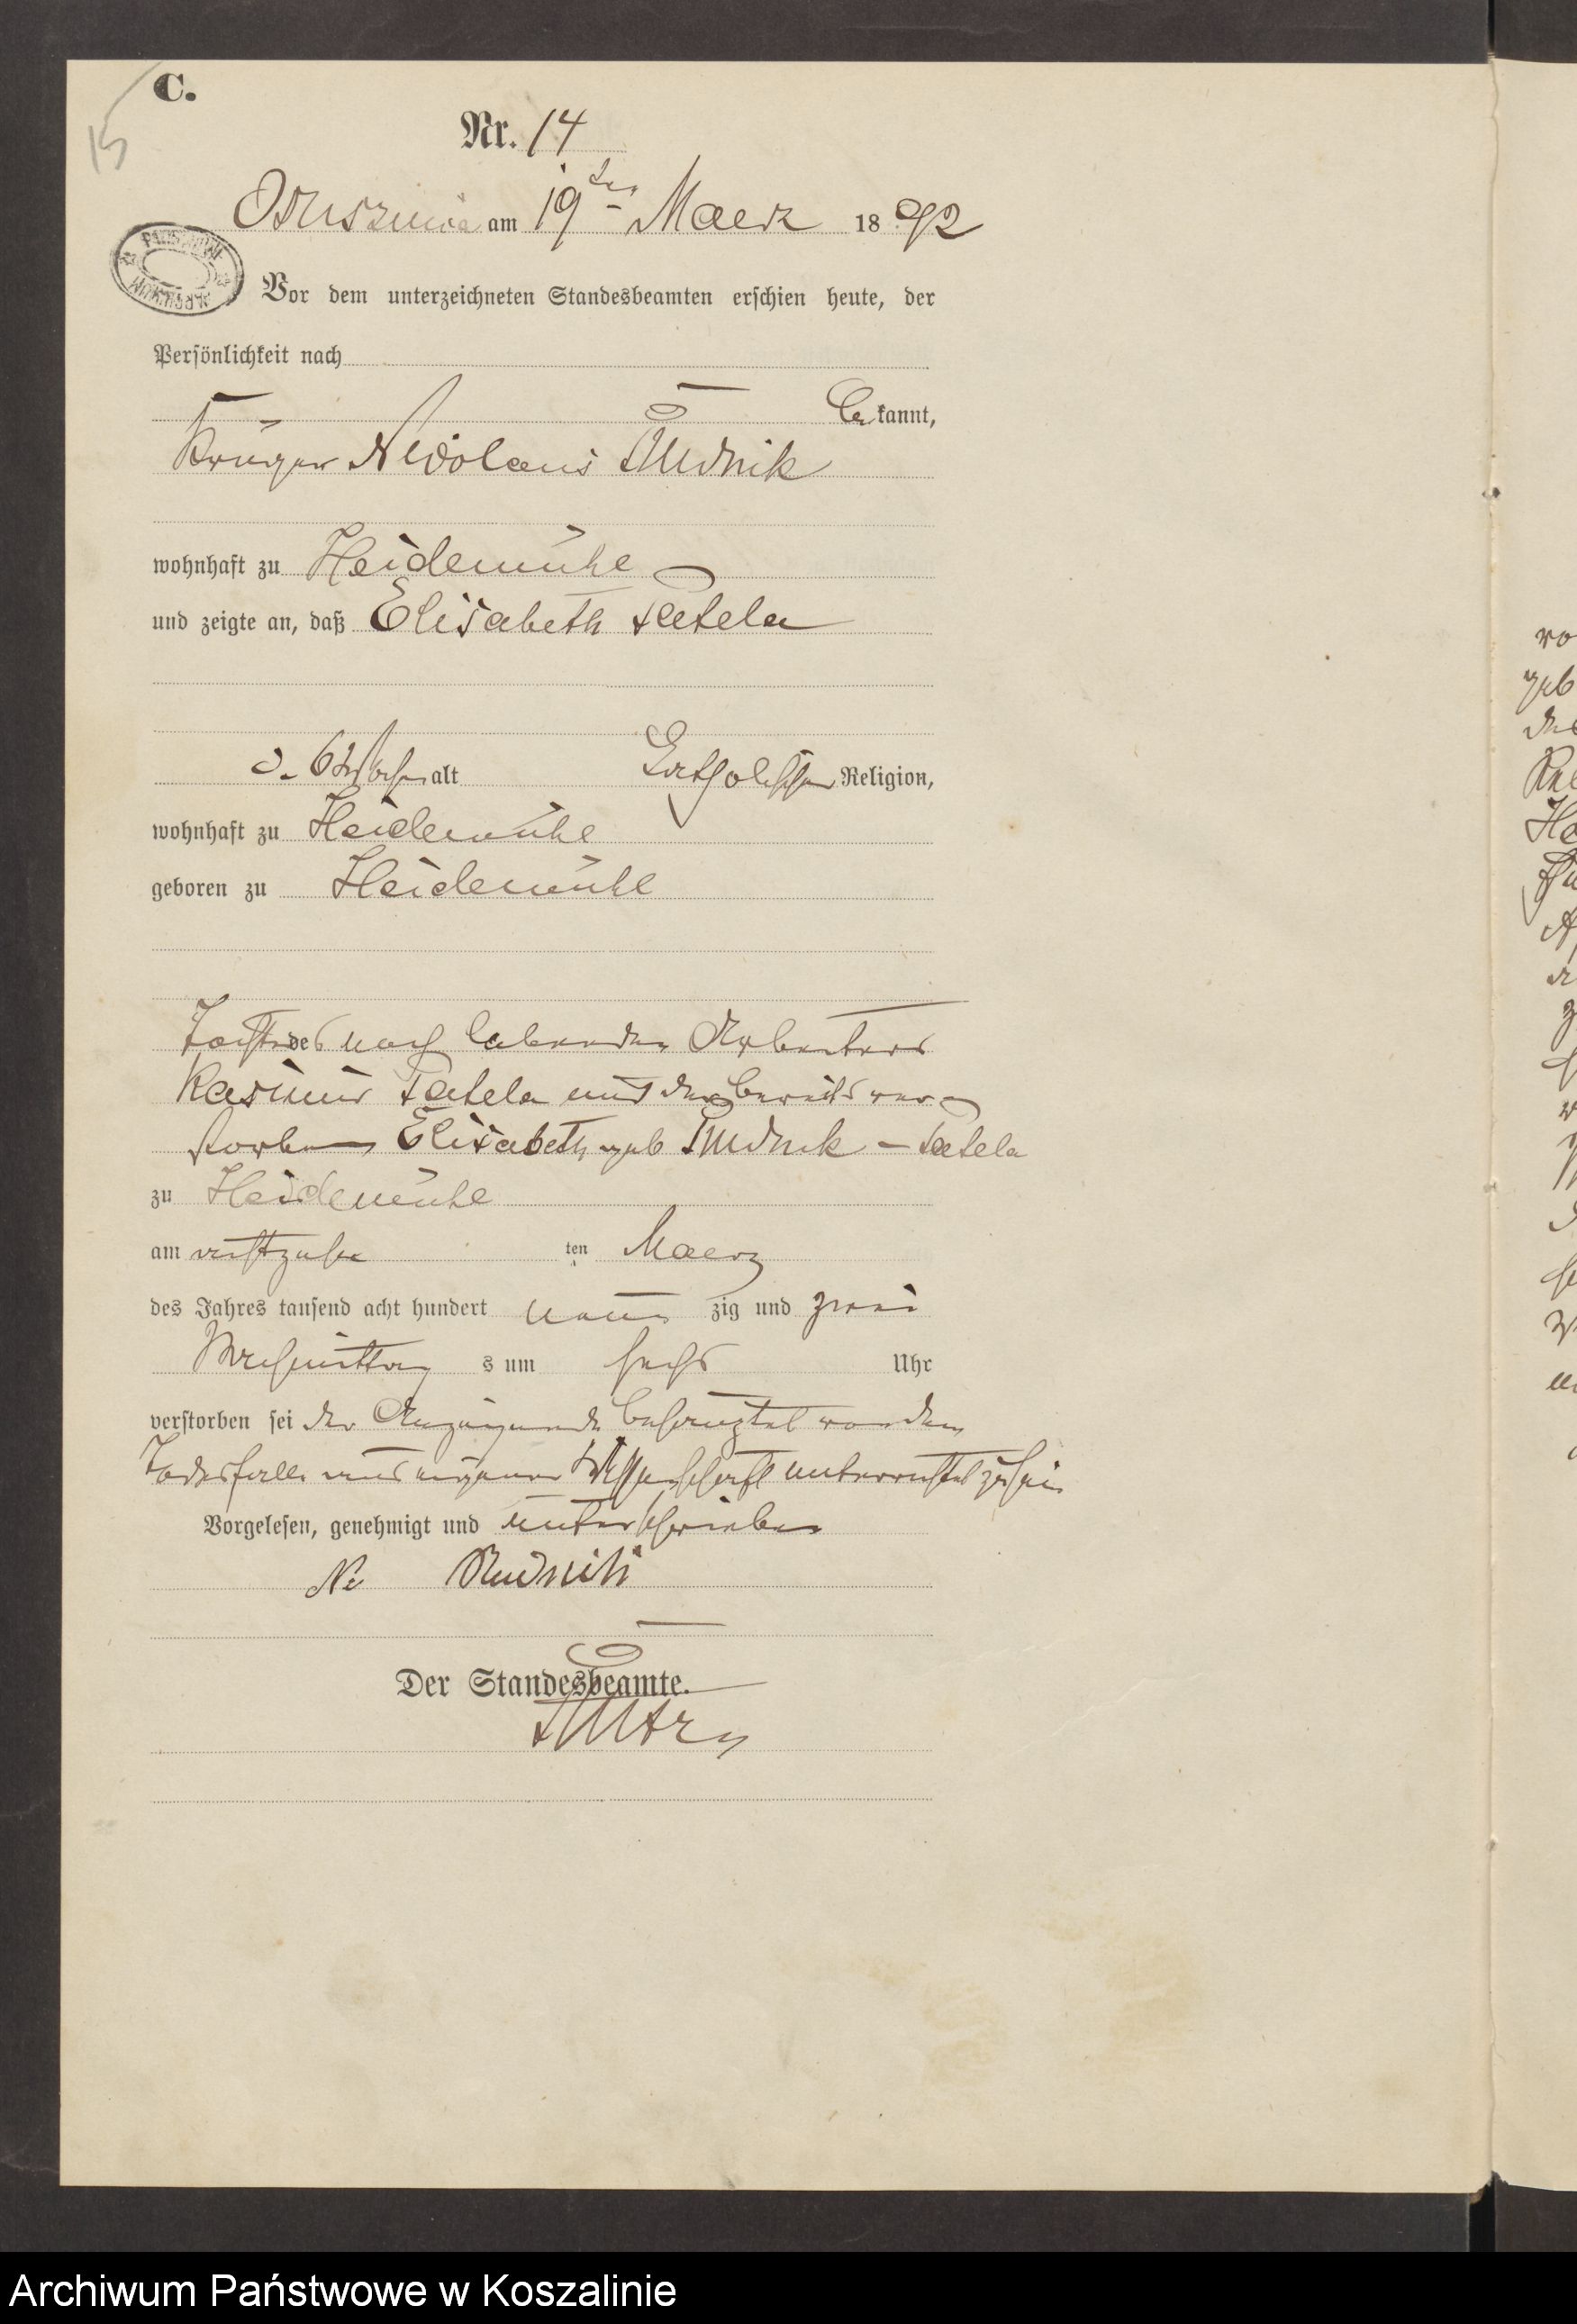 C.
15
Nr. 14
am 19ten Maerz 1892
Vor dem unterzeichneten Standesbeamten erschien heute, der
Persönlichkeit nach
be kannt,
Nicolaus Rudnik
wohnhaft zu Heidemühl
und zeigte an, daß Elisabeth
6 Wochen alt katholischer Religion,
wohnhaft zu Heidemühl
geboren zu Heidemühl
Tochter des noch lebenden Arbeiters
Kasimir und der bereits ver-
storbenen Elisabeth geb Rudnik -
zu Heidemühl
am achtzehn ten Maerz
des Jahres tausend acht hundert neun zig und zwei
Nachmittag s um sechs Uhr
verstorben sei der Anzeigende von dem
Todesfalle aus eigener Wissenschaft unterrichtet zu sein
Vorgelesen, genehmigt und unterschrieben
Rudnik
Der Standesbeamte.
Archiwum Państwowe w Koszalinie